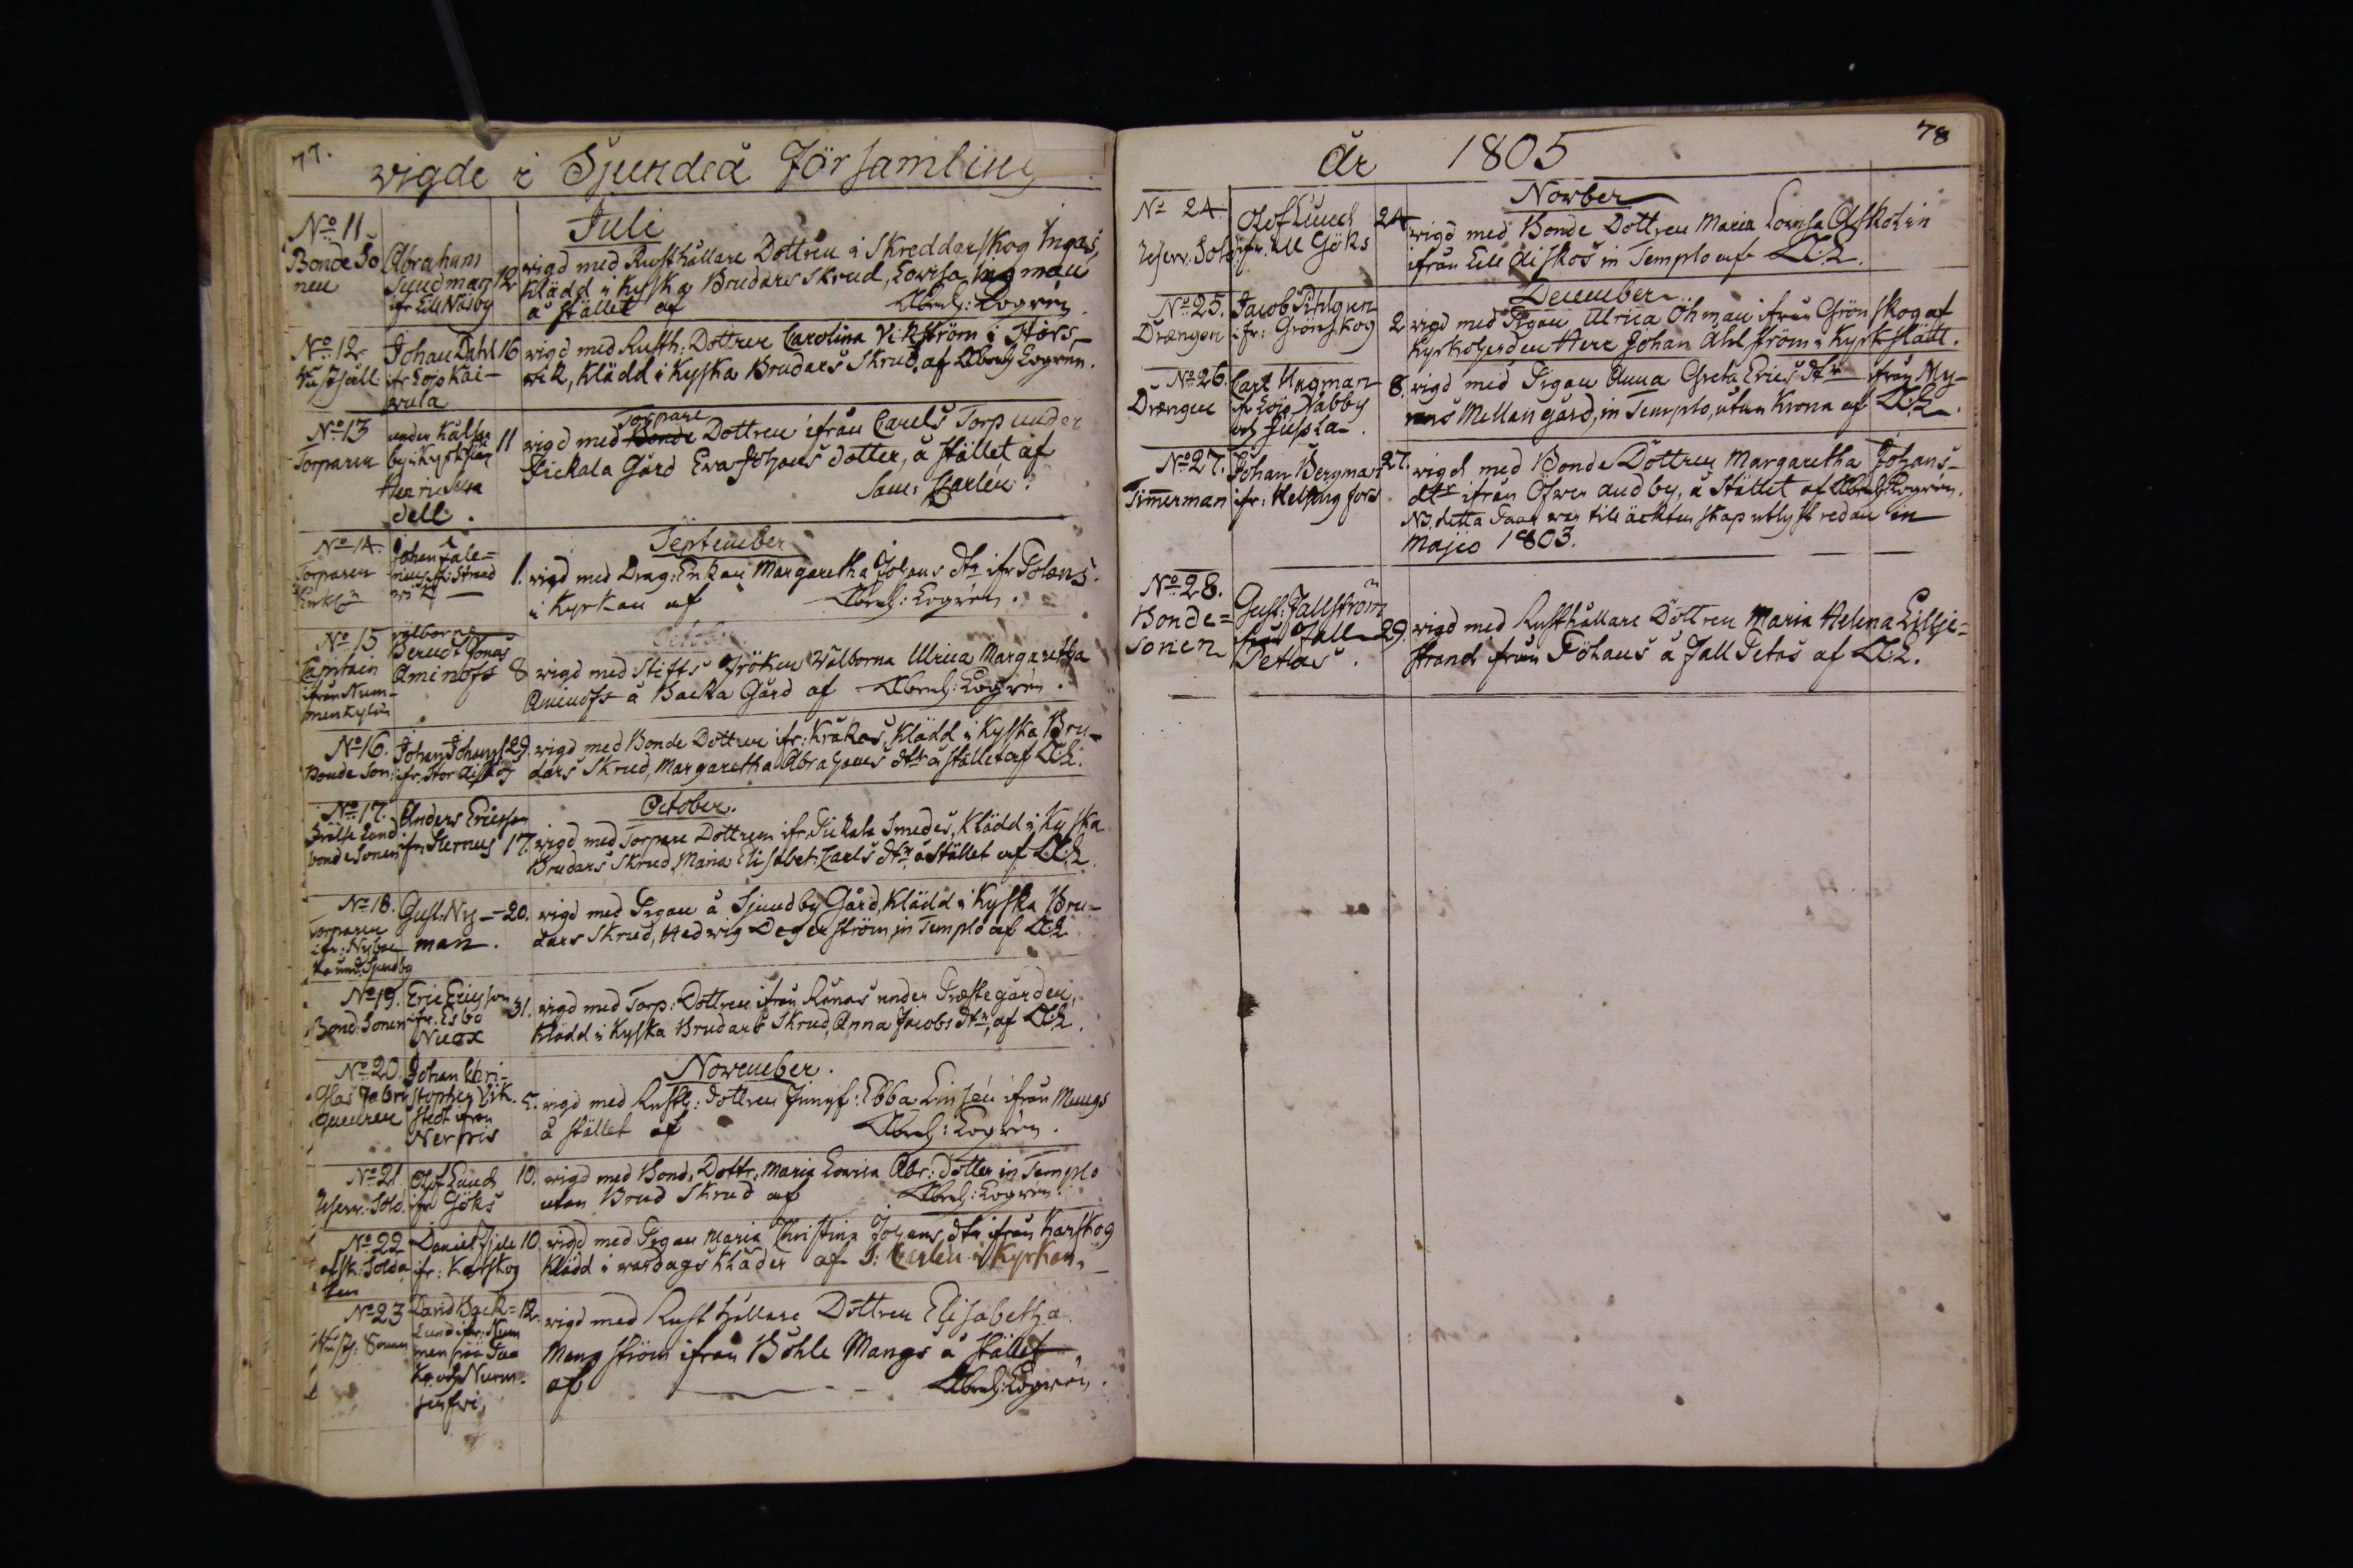 77.
wigde i Sjundeå Församling
Juli
No 11
Bonde So
nen
Abraham
Sundman
ifr Lill Näsby
12
wigd med Rusthållare Dottren i Skreddarskog Ingas,
Klädd i kyska Brudars Skrud, Lovisa Ingman
å stället af Abrah: Logrén
No 12
Johan Dahl
ifr Lojo Kai-
wula
16
wigd med Rusth: Dottren Carolina Vikström i Stors-
wik, Klädd i Kyska Brudars Skrud, af Abrah Logrén.
No 13
Torparen
under Kalfar
by i Kyrkslätt
Henric
dell.
11
Torpare
wigd med Bonde Dottren ifrån Carels Torp under
Pickala Gård Eva Johans dotter, å stället af
Sam: Carlén.
September
No 14.
Torparen
Enkl:n
Johan
1.
wigd med Drag: Enkan Margaretha Johans dtr ifr
i Kyrkan af Abrah: Logrén.
No 15
Captain
ifrån Num-
menkylä
wälborne
Berndt Jonas
Aminoff
8
wigd med Stifts Fröken Wälborna Ulrica Margaretha
Aminoff å Backa Gård af Abrah: Logrén.
No 16.
Bonde Son:
Johan Johanss
ifr. Stor
29.
wigd med Bonde Dottren ifr: Kråkas, Klädd i Kyska Bru-
dars Skrud, Margaretha Abrahams dtr å stället af A:L.
October.
No 17.
Frälse Land
bonde Sonen
Anders Ericsson
ifr: Sternus
17.
wigd med Torpare Dottren ifr. Pickala Smedes, Klädd i Kyska
Brudars Skrud, Maria Elisabet: Carls dtr å stället af A:L.
No 18.
Torparen
ifr: Nybac
ka und: Sjundby
Gust: Ny-
man.
20.
wigd med Pigan å Sjundby Gård, Klädd i Kyska Bru-
dars Skrud, Hedwig Degerström, in Templo af A:L
No 19.
Bond: Sonen
Eric Ericsson
ifr. Esbo
Nuox
31.
wigd med Torp: Dottren ifrån Rånas under Præstegården,
klädd i Kyska Brudars Skrud, Anna Jacobs dtr, af A:L.
November.
No 20.
Glas Fabri
queuren
Johan Chri-
stopher Vik-
stedt ifrån
Nerpis
5.
wigd med Rusth: Dottren Jungf: Ebba Linsén ifrån Mungs
å stället af Abrah: Logrén.
No 21.
Olof Lund
ifr Göks
10.
wigd med Bond: Dottr: Maria Lovisa Abr: Dotter in Templo
utan Brud Skrud af Abrah: Logrén.
No 22
afsk: Solda
ten
Daniel
ifr: Karskog
10
wigd med Pigan Maria Christina Johans dtr ifrån Karskog
Klädd i wardags kläder af S: Carlén i Kyrkan.
No 23
David Back=
lund ifr: Num
12.
wigd med Rusthållare Dottren Elisabetha
Mangström ifrån Böhle Mangs å stället
af Abrah: Logrén.
78
År 1805
Nowber
No 24.
Olof Lund
ifr: Lill Göks
24
wigd med Bonde Dottren Maria Lovisa
ifrån Lill in Templo af A:L.
December
No 25.
Drængen
Jacob
ifr: Grönskog
2
wigd med Pigan Ulrica Öhman ifrån Grönskog af
Kyrkoherden Herr Johan Ahlström i Kyrkslätt.
No 26.
Drængen
Carl Hagman
ifr Lojo Nabby
och
8.
wigd med Pigan Anna Greta Erics dtr ifrån My-
rans Mellangård, in Templo, utan Krona af A:L.
No 27.
Timerman
Johan Bergman
ifr: Helsingfors
27.
wigd med Bonde Dottren Margaretha Johans-
dtr ifrån Öfwer andby, å stället af Abrah: Logrén.
NB. detta Paar war till äcktenskap utlyst redan in
Majo 1803.
No 28.
Bonde=
Sonen
Gust: Fallström
från Fall
Petas.
29.
wigd med Rusthållare Dottren Maria Helena Lillje=
strand ifrån Föhans å Fall Petas af A:L.